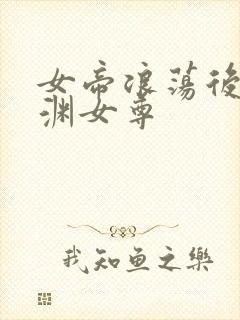 女帝浪荡後
渊女尊
我知鱼之乐